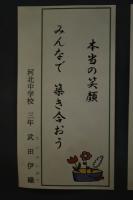 本当の笑顔
みんなで 築き合おう
河北中学校 三年 武田伊織